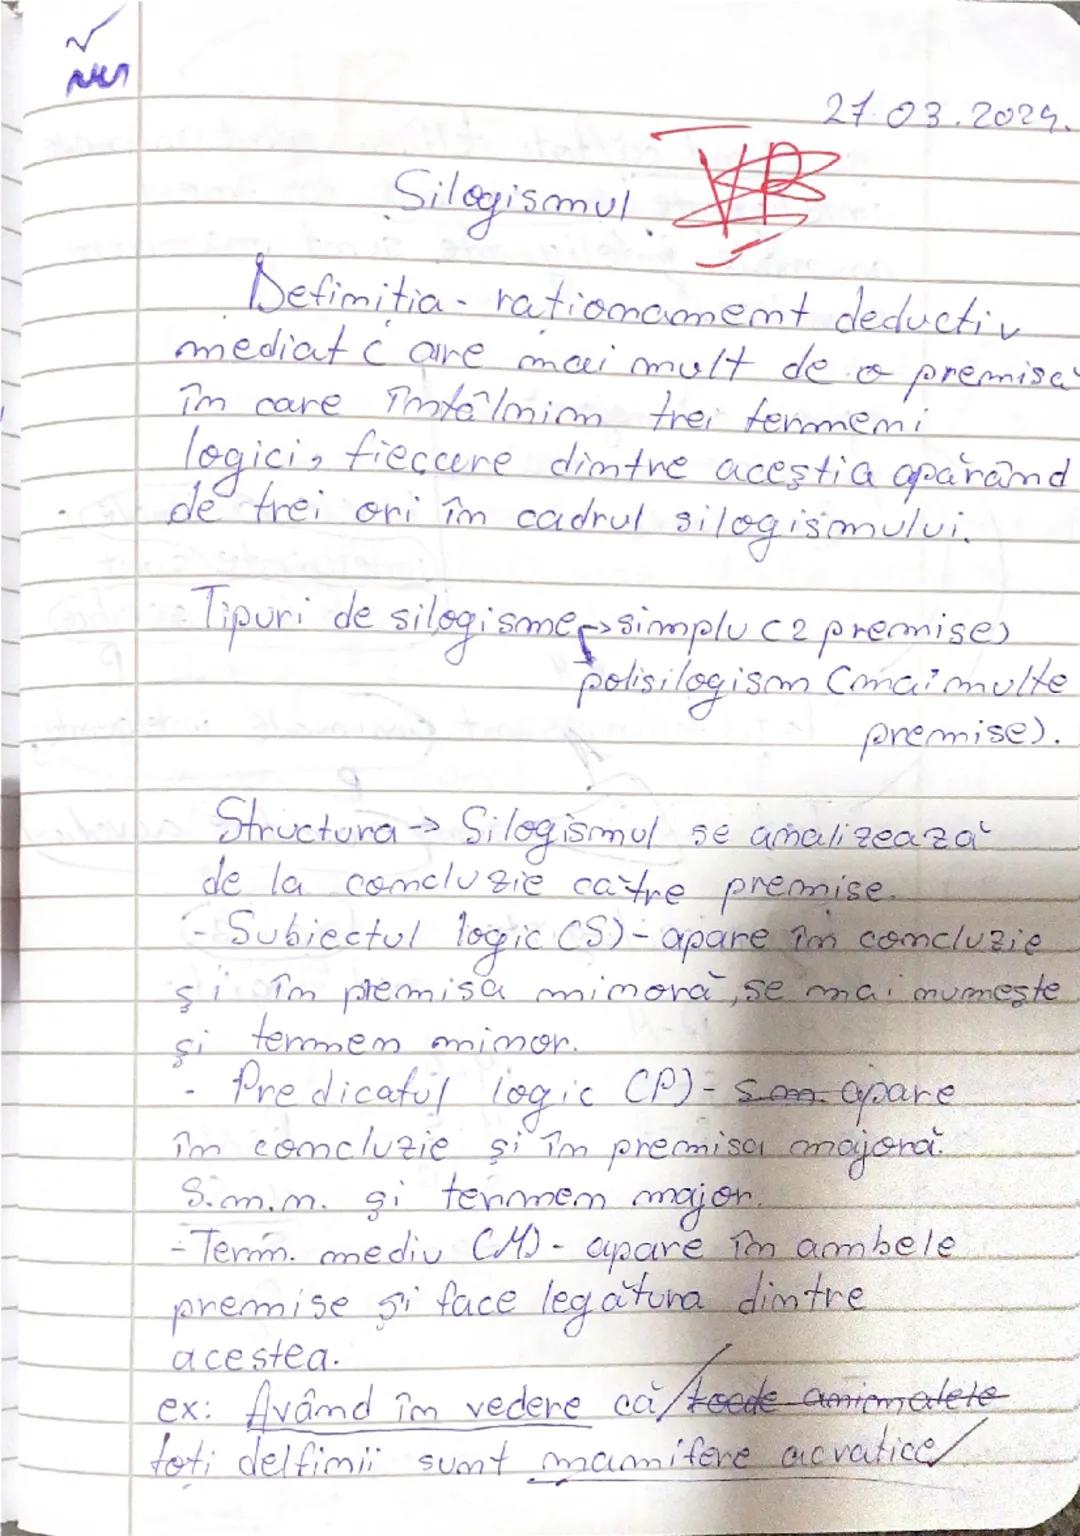 27.03.2024.
Silogismul
Definiția - raționament deductiv
mediat (are mai mult de o premisă
în care întâlnim trei termeni
logici, fiecare dintre aceștia apărând
de trei ori în cadrul silogismului.
Tipuri de silogisme → simplu (2 premise)
polisilogism (mai multe
premise).
Structura → Silogismul se analizează
de la concluzie către premise.
- Subiectul logic (S) - apare în concluzie
și în premisa minoră, se mai numește
și termen minor.
- Predicatul logic (P) - apare
în concluzie și în premisa majoră.
S.m.n. și termen major.
- Term. mediu (M) - apare în ambele
premise și face legătura dintre
acestea.
ex: Având în vedere că / toade animalele
toți delfinii sunt mamifere acvatice /